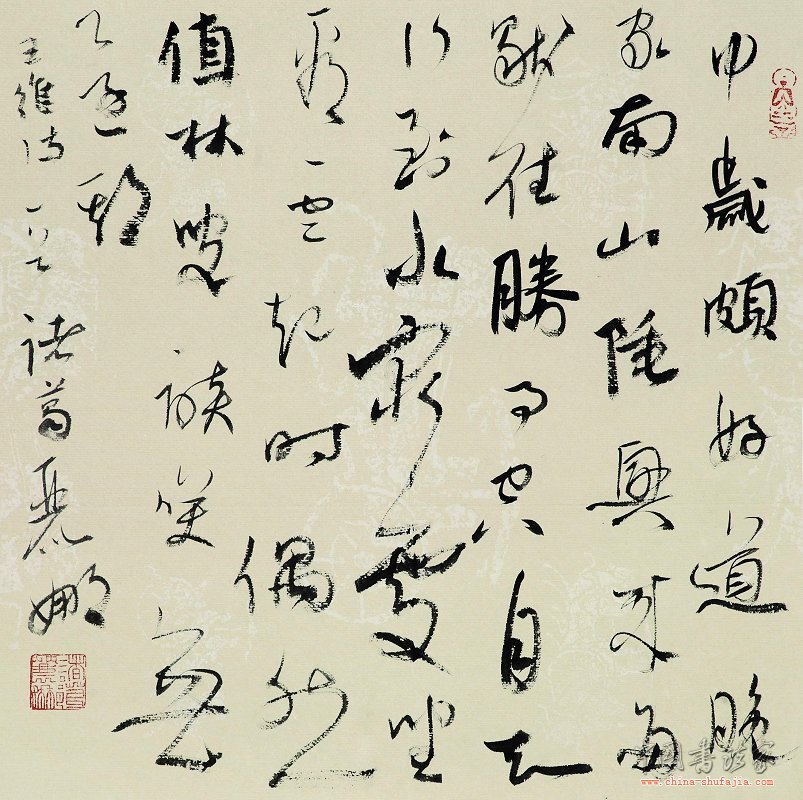 中歲頗好道晚
家南山陲興来每
獣往勝事空自知
行到水窮處坐
看雲起时偶然
值林叟談笑無
還期
王維诗一首 諸葛麗娜
中国书法家
www.china-shufajia.com